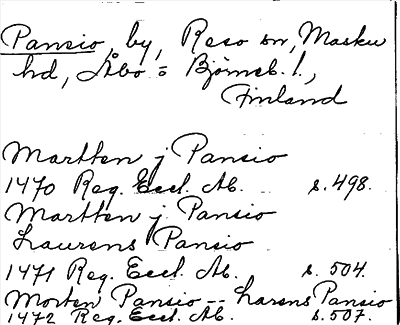 Pansio, by, Reso sn, Masku
hd, Åbo = Björneb. l.,
Finland
Martten j Pansio
1470 Reg. Eccl. Ab. s. 498.
Martten j. Pansio
Laurens Pansio
1471 Reg. Eccl. Ab. s. 504.
Morten Pansio -- Larens Pansio
1472 Reg. Eccl. Ab. s. 507.